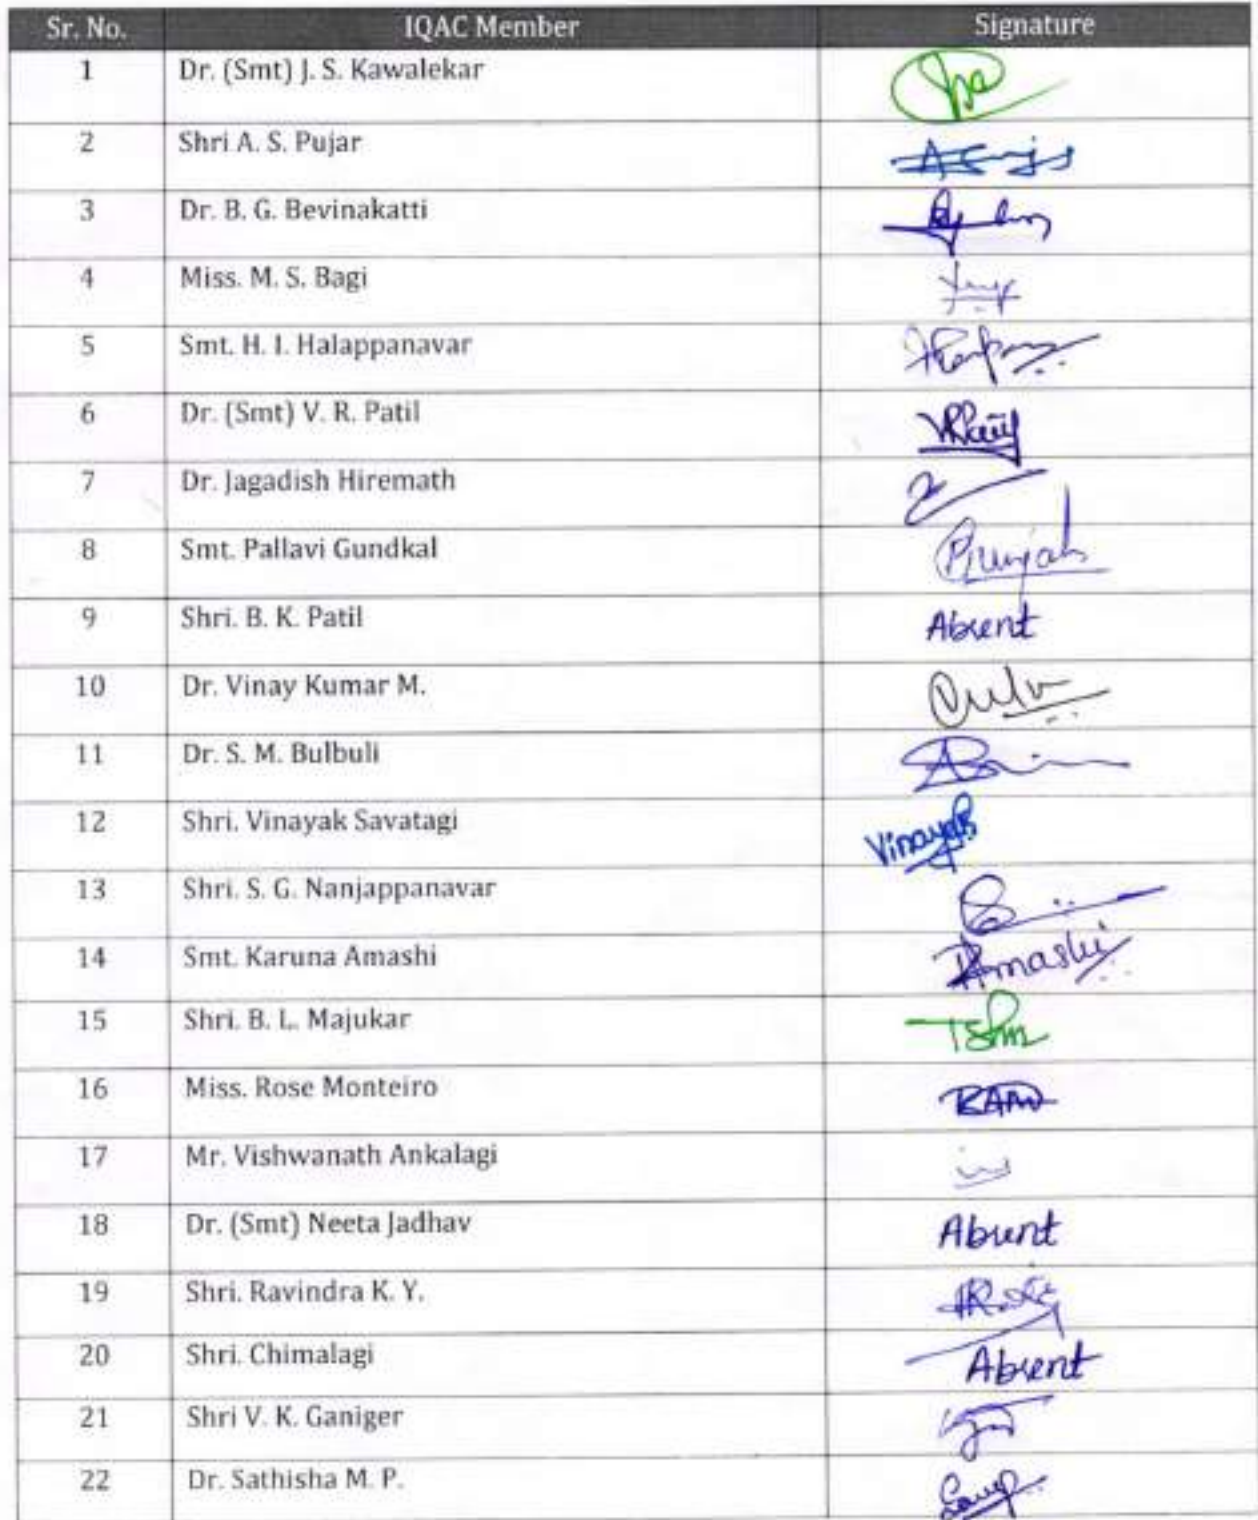 Sr. No. IQAC Member Signature
1 Dr. (Smt) J. S. Kawalekar
2 Shri A. S. Pujar
3 Dr. B. G. Bevinakatti
4 Miss. M. S. Bagi
5 Smt. H. I. Halappanavar
6 Dr. (Smt) V. R. Patil
7 Dr. Jagadish Hiremath
8 Smt. Pallavi Gundkal
9 Shri. B. K. Patil Absent
10 Dr. Vinay Kumar M.
11 Dr. S. M. Bulbuli
12 Shri. Vinayak Savatagi
13 Shri. S. G. Nanjappanavar
14 Smt. Karuna Amashi
15 Shri. B. L. Majukar
16 Miss. Rose Monteiro
17 Mr. Vishwanath Ankalagi
18 Dr. (Smt) Neeta Jadhav Absent
19 Shri. Ravindra K. Y.
20 Shri. Chimalagi Absent
21 Shri V. K. Ganiger
22 Dr. Sathisha M. P.